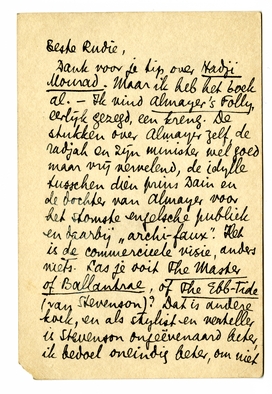 Beste Rudie,
Dank voor je tip over Hadji
Mourad. Maar ik heb het boek
al. – Ik vind Almayer's Folly,
eerlijk gezegd, een kreng. De
stukken over Almayer zelf, de
radjah en zijn minister wel goed
maar vrij vervelend, de idylle
tusschen dien prins Dain en
de dochter van Almayer voor
het stomste engelsche publiek
en daarbij „archi-faux". Het
is de commercieele visie, anders
niets. Las je ooit The Master
of Ballantrae, of The Ebb-Tide
(van Stevenson)? Dat is andere
koek, en als stylist en verteller
is Stevenson ongeëvenaard beter,
ik bedoel oneindig beter, om niet